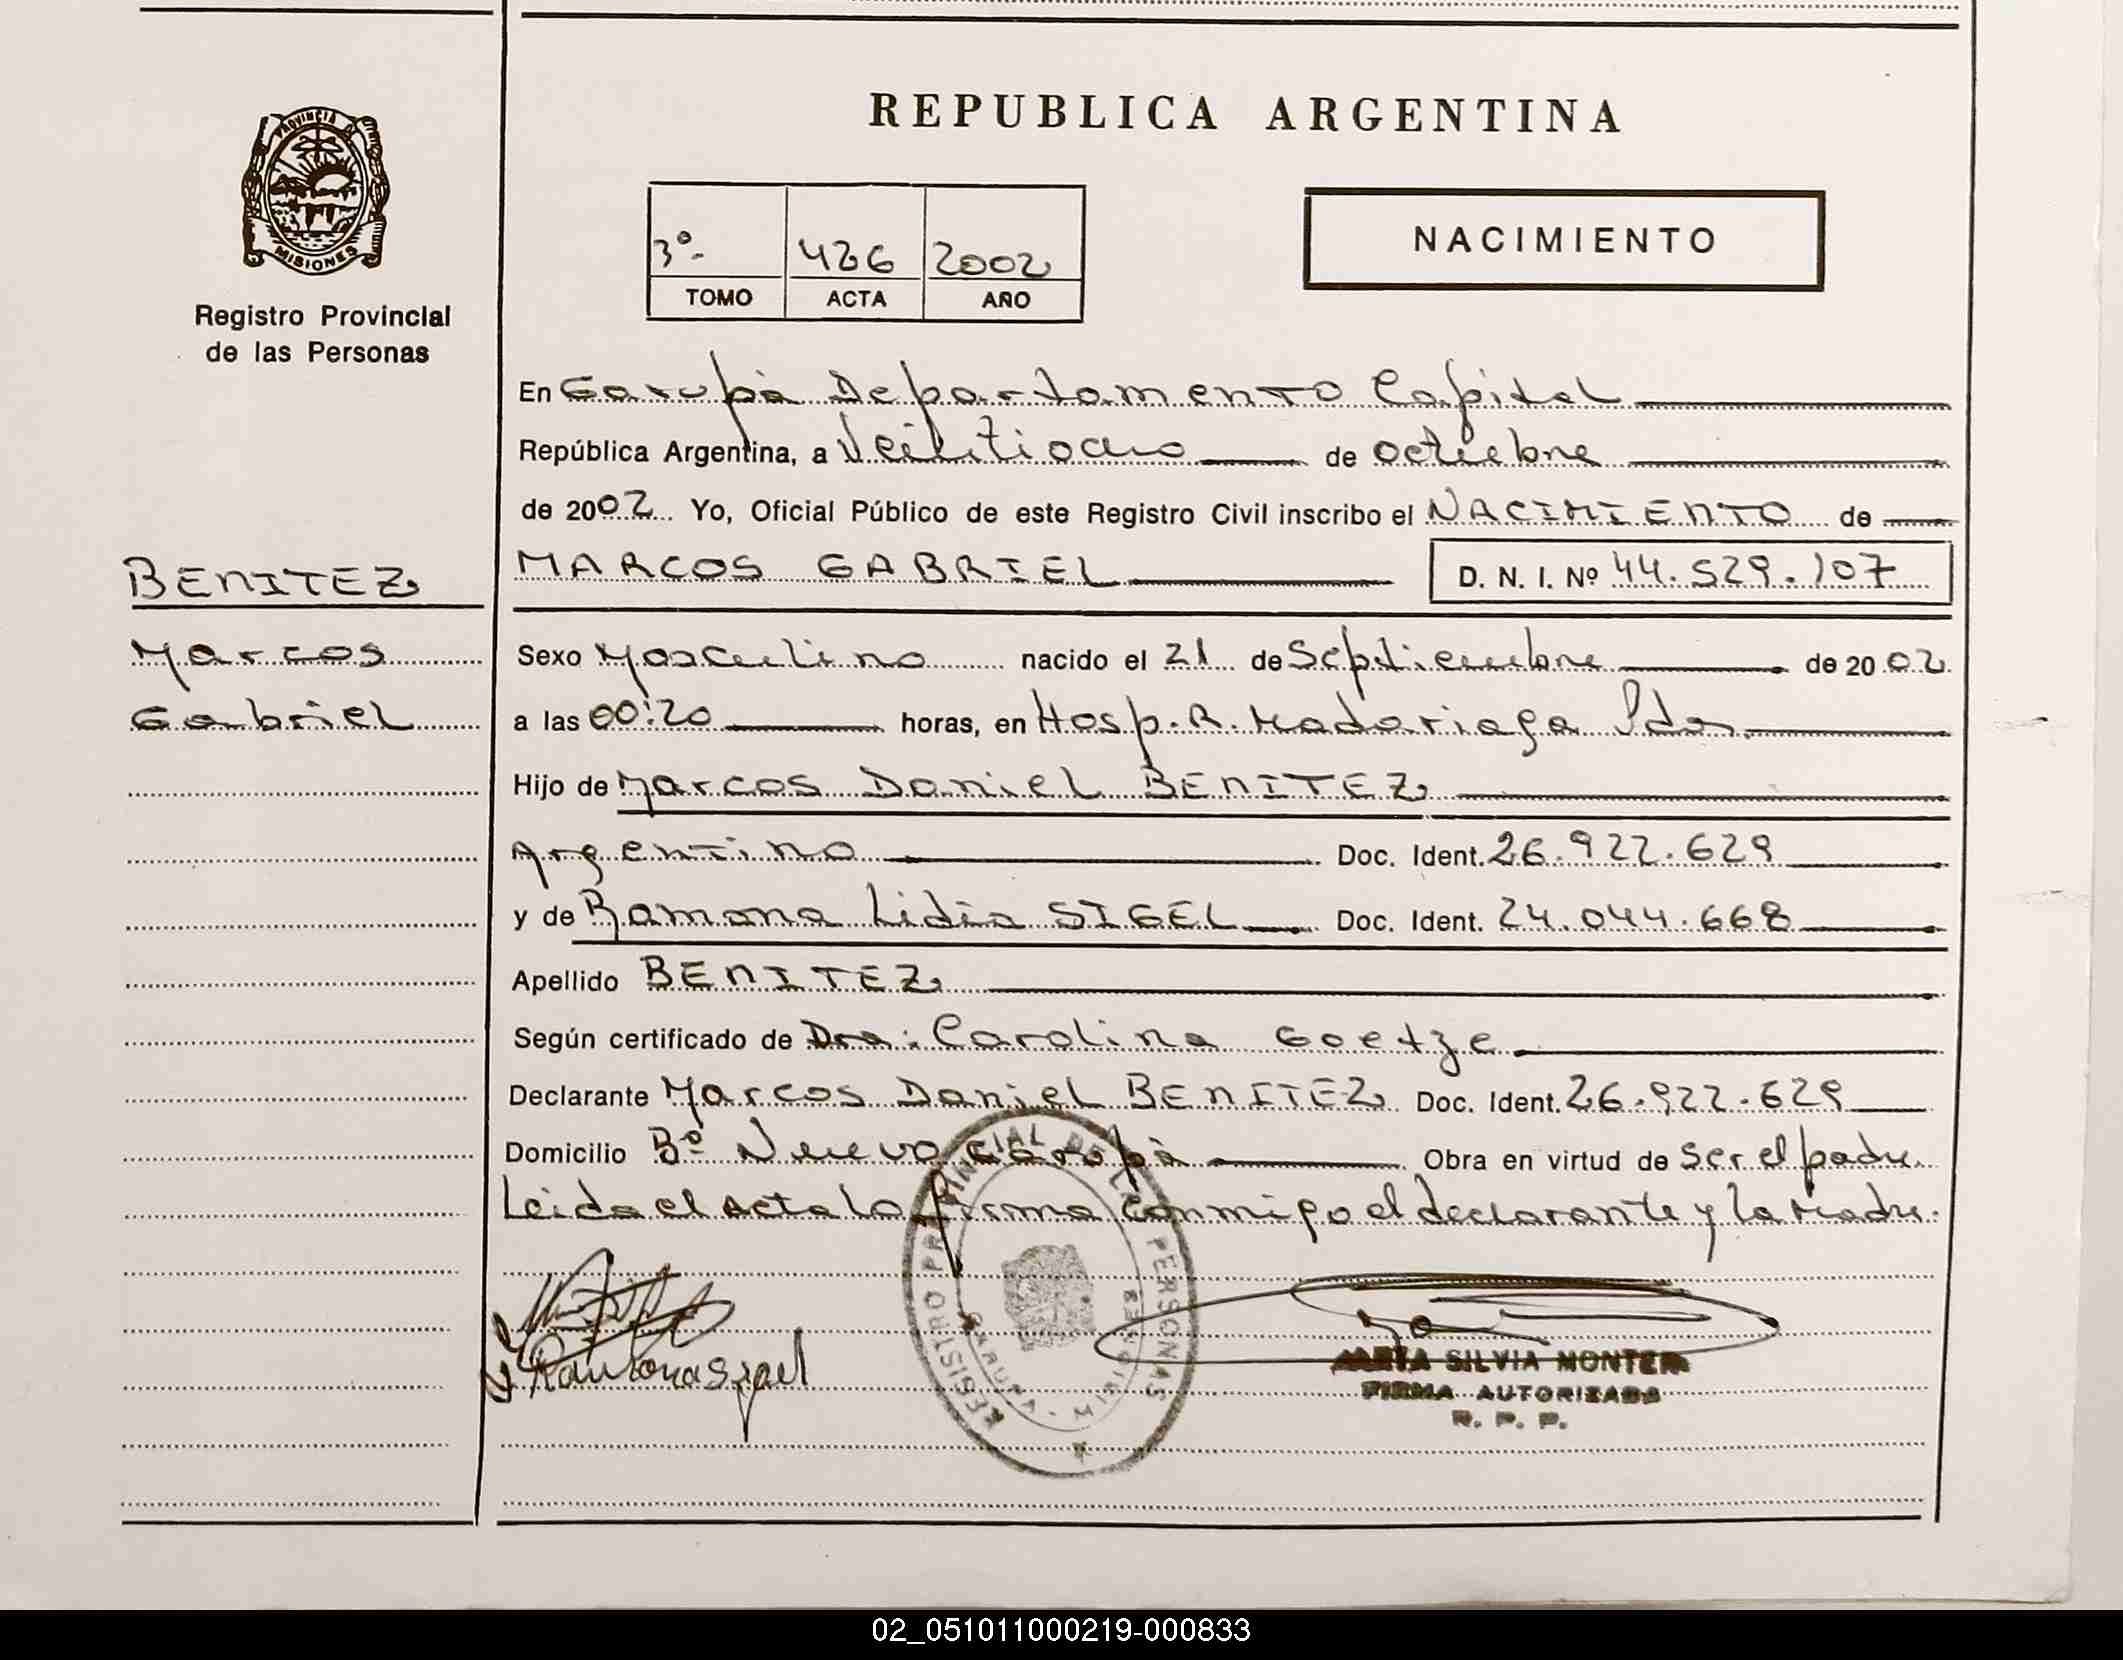 REPUBLICA ARGENTINA
PROVINCIA DE
MISIONES
Registro Provincial
de las Personas
3º- 426 2002
TOMO ACTA AÑO
NACIMIENTO
En Garupà Departamento Capital
República Argentina, a Veintiocho de octubre
de 2002 Yo, Oficial Público de este Registro Civil inscribo el NACIMIENTO de
BENITEZ
MARCOS GABRIEL D. N. I. Nº 44.529.107
Marcos
Gabriel
Sexo Masculino nacido el 21 de Septiembre de 2002
a las 00:20 horas, en Hosp. R. Madariaga Pdas.
Hijo de Marcos Daniel BENITEZ
Argentino Doc. Ident. 26.922.629
y de Ramona Lidia SIGEL Doc. Ident. 24.044.668
Apellido BENITEZ
Según certificado de Dra. Carolina Goetze
Declarante Marcos Daniel BENITEZ Doc. Ident. 26.922.629
Domicilio Bº Nuevo Garupà Obra en virtud de ser el padre.
Leida el acta la firma conmigo el declarante y la Madre.
REGISTRO PROVINCIAL DE LAS PERSONAS
GARUPA - MISIONES
Ramona Sigel
SILVIA MONTER
FIRMA AUTORIZADA
R. P. P.
02_051011000219-000833